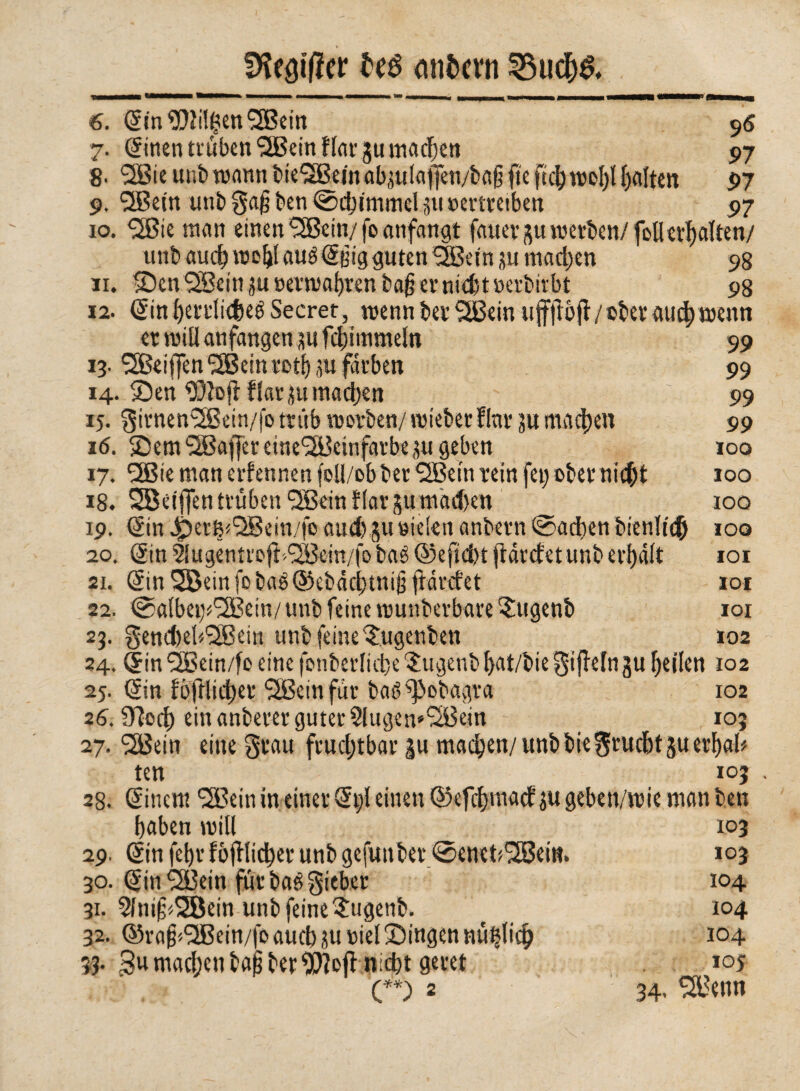 Register des andern Buchs.
6. Ein Miltzen Wein 96
7. Einen trüben Wein klar zu machen 97
8. Wie und wann die Wein abzulassen/daß sie sich wohl halten 97
9. Wein und Faß den Schimmel zu vertreiben 97
10. Wie man einen Wein/ so anfangt sauer zu werden/ soll erhalten/
und auch wohl aus Eßig guten Wein zu machen 98
11. Den Wein zu verwahren daß er nicht verdirbt 98
12. Ein herrliches Secret, wenn der Wein uffstöst/ oder auch wenn
er will anfangen zu schimmeln 99
13. Weissen Wein roth zu färben 99
14. Den Most klar zu machen 99
15. Firnen Wein/so trüb worden/ wieder klar zu machen 99
16. Dem Wasser eine Weinfarbe zu geben 100
17. Wie man erkennen soll/ob der Wein rein sey oder nicht 100
18. Weissen trüben Wein klar zu machen 100
19. Ein Hertz-Wein/so auch zu vielen andern Sachen dienlich 100
20. Ein Augentrost-Wein/so das Gesicht stärcket und erhält 101
21. Ein Wein so das Gedächtniß stärcket 101
22. Salbey-Wein/ und seine wunderbare Tugend 101
23. Fenchel-Wein und seine Tugenden 102
24. Ein Wein/so eine sonderliche Tugend hat/die Fisteln zu heilen 102
25. Ein köstlicher Wein für das Podagra 102
26. Noch ein anderer guter Augen-Wein 103
27. Wein eine Frau fruchtbar zu machen/ und die Frucht zu erhal-
ten 103
28. Einem Wein in einer Eyl einen Geschmack zu geben/wie man den
haben will 103
29. Ein sehr köstlicher und gesunder Senet-Wein. 103
30. Ein Wein für das Fieber 104
31. Aniß-Wein und seine Tugend. 104
32. Graß-Wein/so auch zu viel Dingen nützlich 104
33. Zu machen daß der Most nicht geret 105
(**) 2 34. Wenn